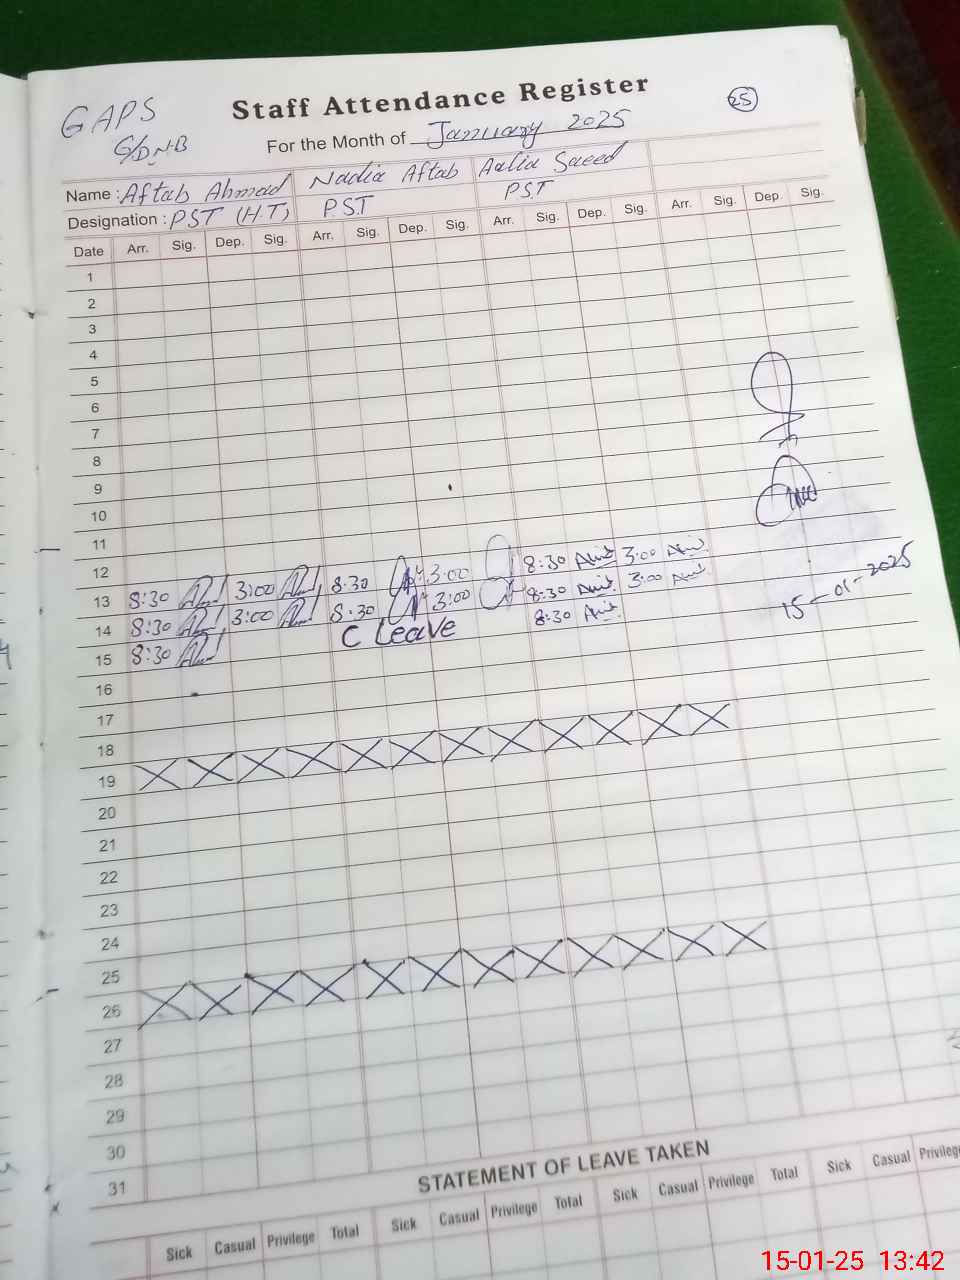 GAPS
Staff Attendance Register
25
G/DNB
For the Month of January 2025
Name : Aftab Ahmad Nadia Aftab Aalia Saeed
Designation : PST (H.T) PST PST
Date Arr. Sig. Dep. Sig. Arr. Sig. Dep. Sig. Arr. Sig. Dep. Sig. Arr. Sig. Dep. Sig.
1
2
3
4
5
6
7
8
9
10
11
12
13 8:30 3:00 8:30 3:00 8:30 3:00
14 8:30 3:00 8:30 3:00 8:30 3:00
15 8:30 C Leave 8:30
15-01-2025
16
17
18
19
20
21
22
23
24
25
26
27
28
29
30
31
STATEMENT OF LEAVE TAKEN
Sick Casual Privilege Total Sick Casual Privilege Total Sick Casual Privilege Total Sick Casual Privilege
15-01-25 13:42